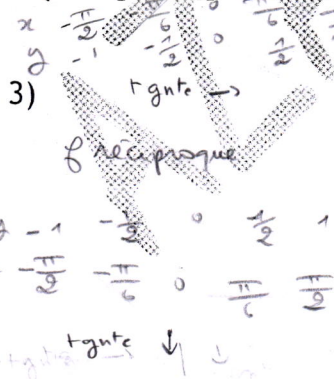 x -π/2 -π/6 0 π/6
y -1 -1/2 0 1/2
3) tgnte →
f réciproque
-1 -1/2 0 1/2 1
-π/2 -π/6 0 π/6 π/2
tgnte ↓